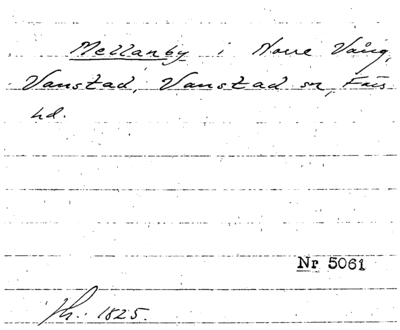 Mellanby i Norre Vång,
Vanstad, Vanstad sn, Färs
hd.
Nr 5061
1825.